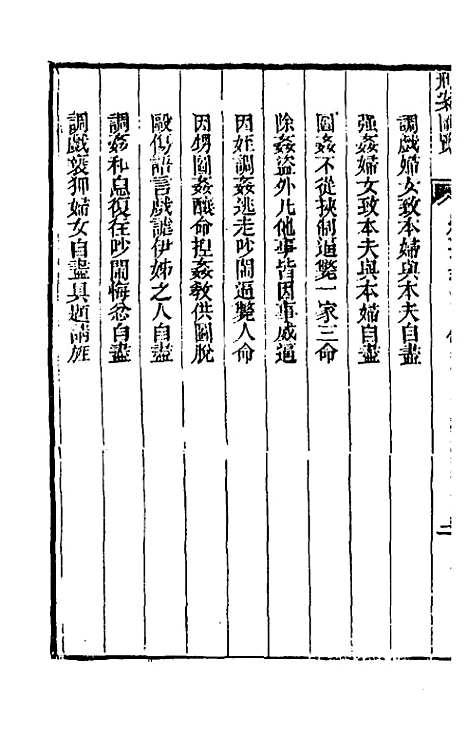 調戲婦女致本婦與本夫自盡
強姦婦女致本夫與本婦自盡
圖姦不從挾制逼斃一家三命
除姦盜外凡他事皆因事威逼
因姪調姦逃走吵鬧逼斃人命
因甥圖姦釀命捏姦教供圖脫
毆傷語言戲謔伊姊之人自盡
調姦和息復往吵鬧悔忿自盡
調戲褻狎婦女自盡具題請旌